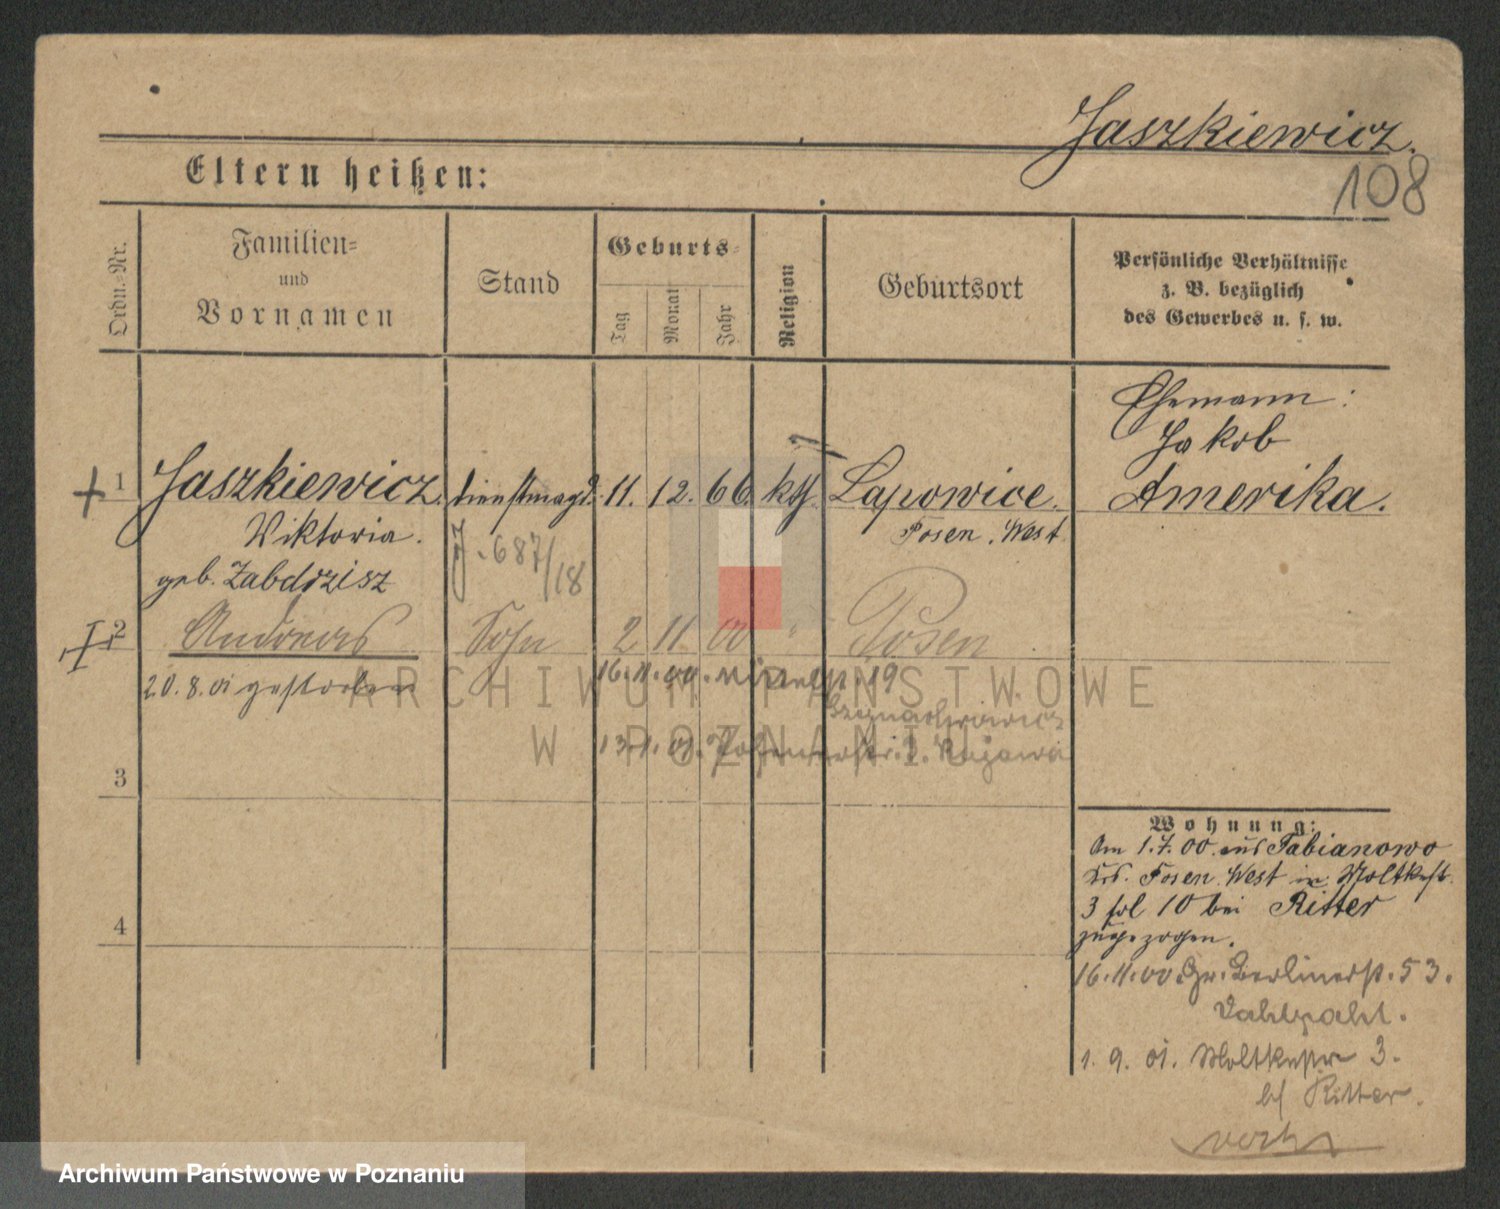 Jaszkiewicz.
108
Eltern heißen:
Ordn.-Nr.
Familien-
und
Vornamen
Stand
Geburts-
Tag
Monat
Jahr
Religion
Geburtsort
Persönliche Verhältnisse
z. B. bezüglich
des Gewerbes u. s. w.
Ehemann:
Jakob
Amerika.
1 Jaszkiewicz. Dienstmagd. 11. 12. 66. kth. Lapowice.
Wiktoria.
Posen. West.
geb. Zabdrzisz
J. 687/18
2 Andreas Sohn 2 11 00 " Posen
20.8.01 gestorben
16.11.00. 19
13.1.01.
3
4
Wohnung:
Am 1.7.00. aus Fabianowo
Krs. Posen. West in Moltkestr.
3 bei Ritter
zugezogen.
16.11.00. Gr. Berlinerstr. 53.
1. 9. 01. Moltkestr 3.
b/ Ritter.
ARCHIWUM PAŃSTWOWE
W POZNANIU
Archiwum Państwowe w Poznaniu